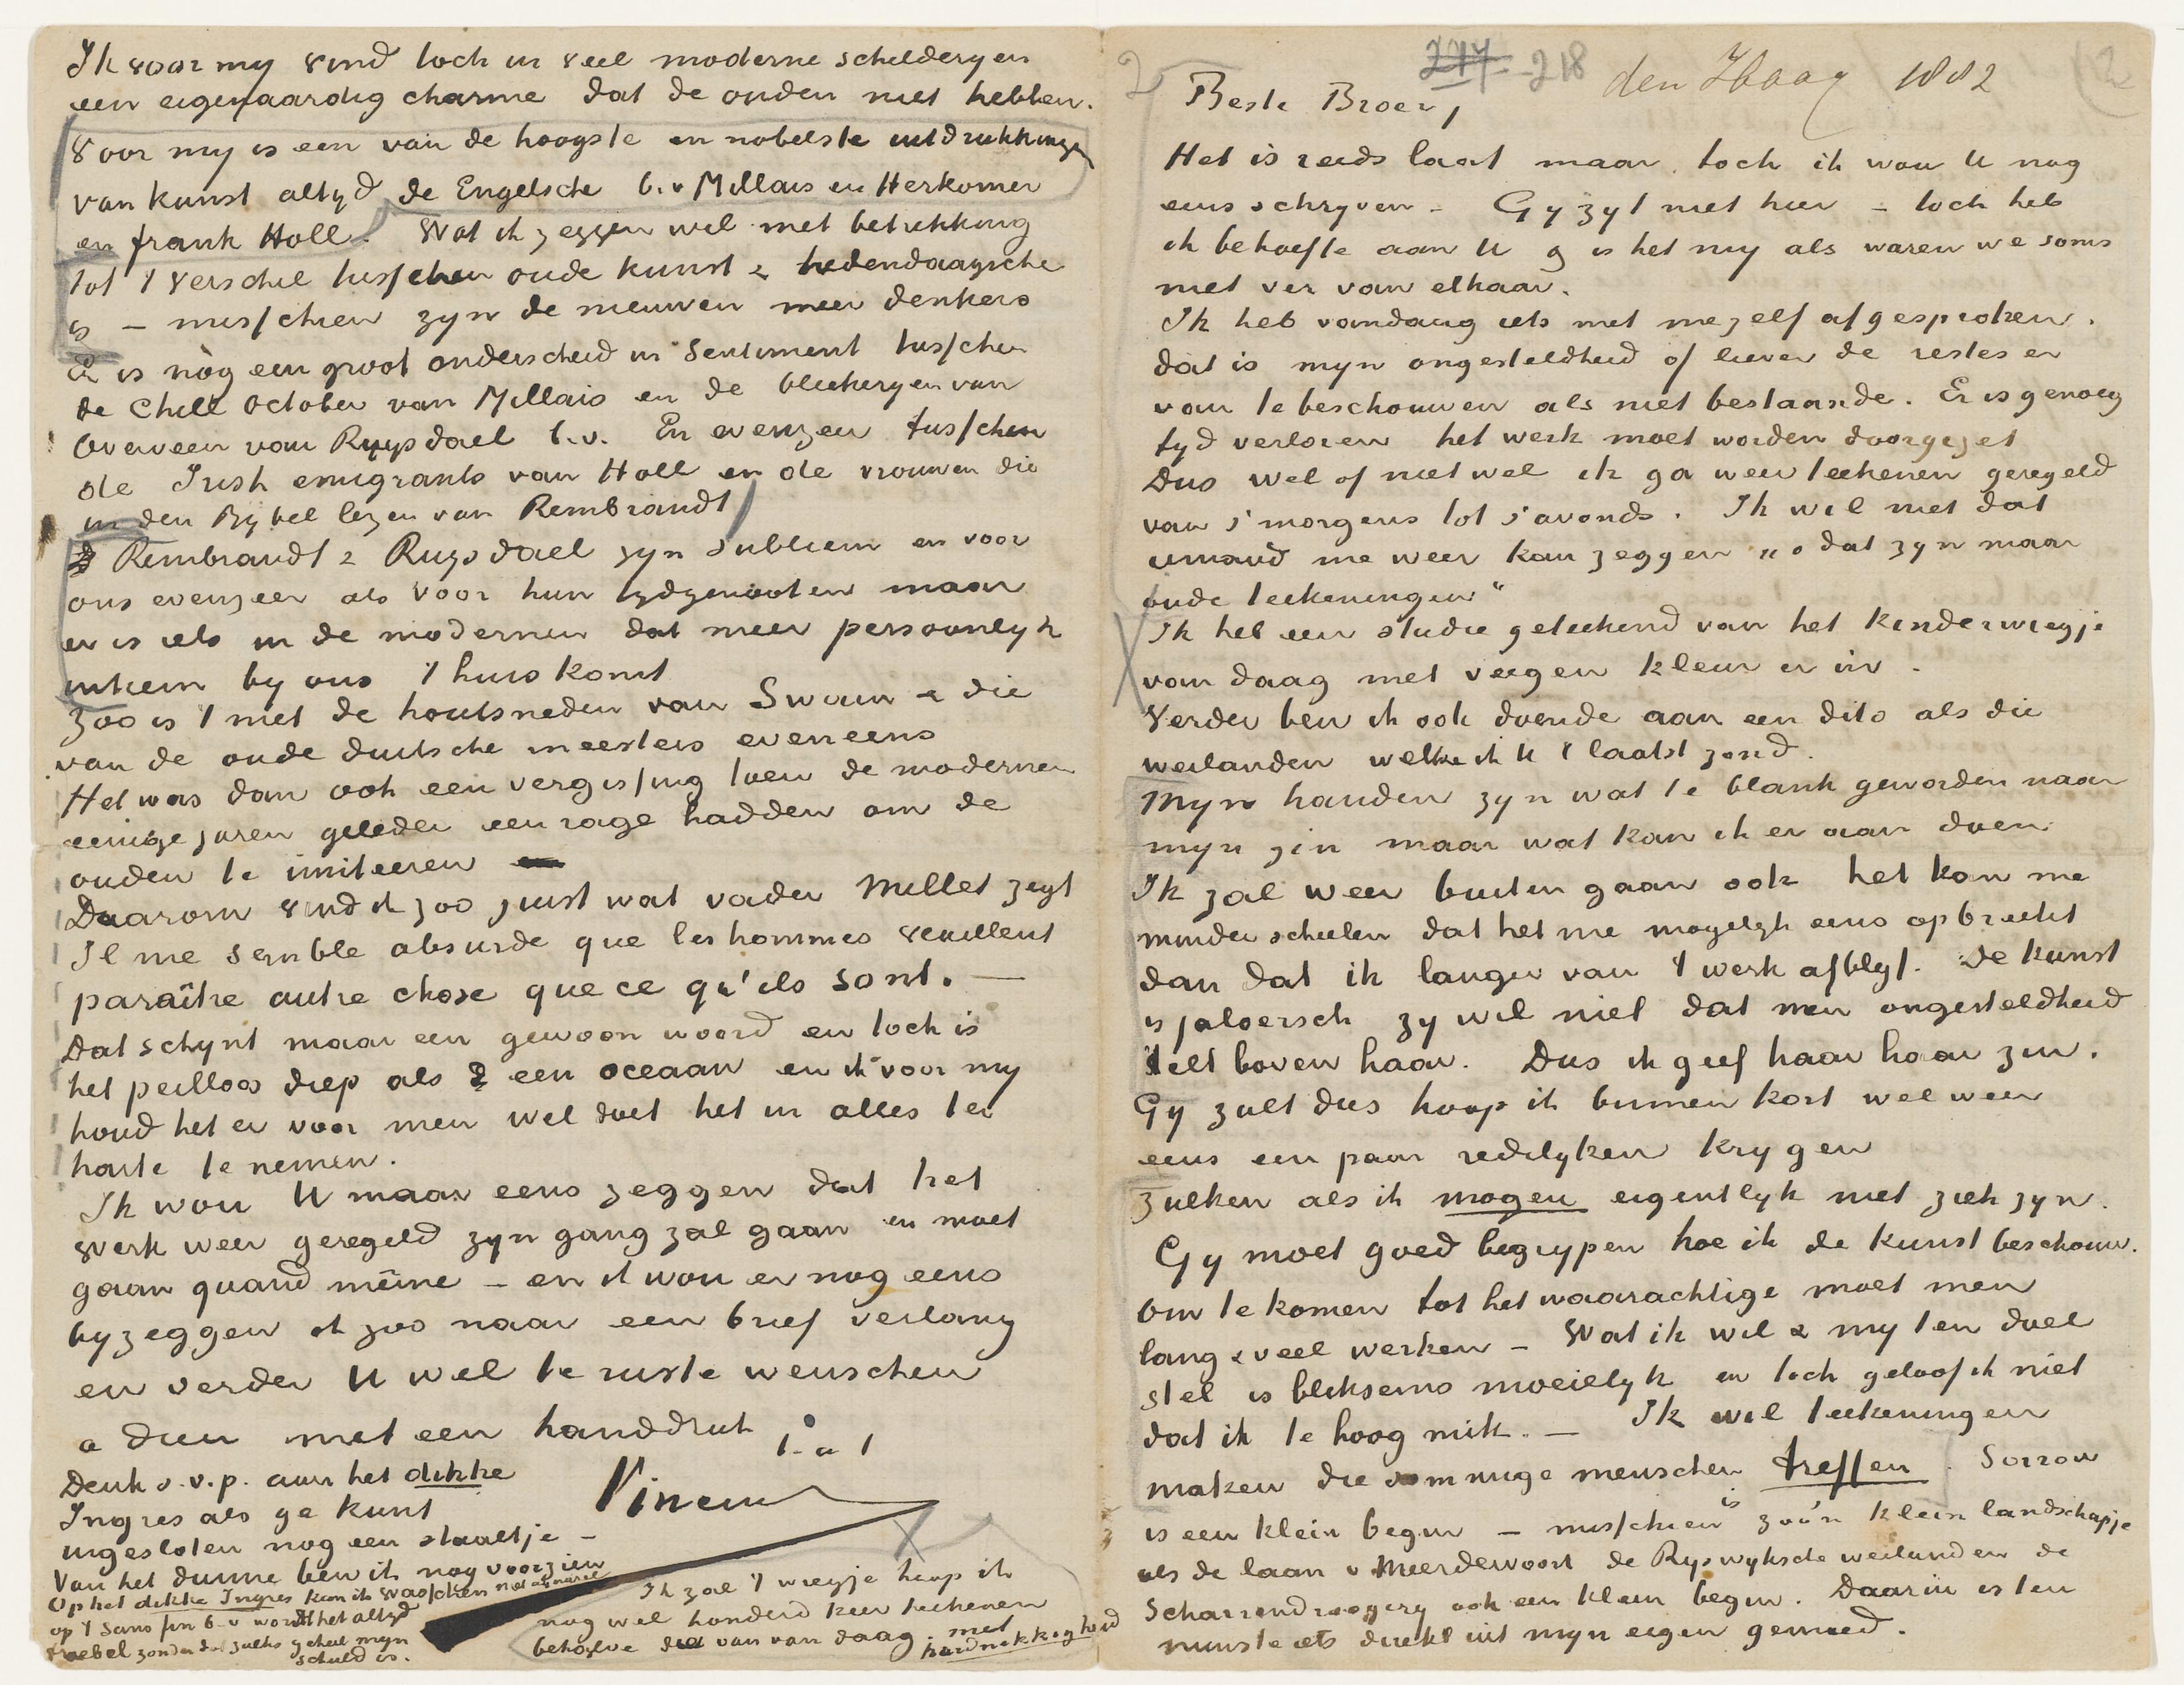 Ik voor my vind toch in veel moderne schilderyen
een eigenaardig charme dat de ouden niet hebben.
Voor my is een van de hoogste en nobelste uitdrukkingen
van kunst altyd de Engelsche b.v Millais en Herkomer
en frank Holl. Wat ik zeggen wil met betrekking
tot 't verschil tusschen oude kunst & hedendaagsche
is – misschien zyn de nieuwen meer denkers
Er is nòg een groot onderscheid in sentiment tusschen
de Chill October van Millais en de bleekeryen van
Overveen van Ruysdael b.v. En evenzeer tusschen
de Irish emigrants van Holl en de vrouwen die
in den Bybel lezen van Rembrandt
Rembrandt & Ruysdael zyn subliem en voor
ons evenzeer als voor hun tydgenooten maar
er is iets in de modernen dat meer persoonlyk
intiem by ons t'huis komt
Zoo is 't met de houtsneden van Swain & die
van de oude duitsche meesters eveneens
Het was dan ook een vergissing toen de modernen
eenige jaren geleden een rage hadden om de
ouden te imiteeren
Daarom vind ik zoo juist wat vader Millet zegt
Il me semble absurde que les hommes veuillent
paraître autre chose que ce qu'ils sont. —
Dat schynt maar een gewoon woord en toch is
het peilloos diep als een oceaan en ik voor my
houd het er voor men wel doet het in alles ter
harte te nemen.
Ik wou U maar eens zeggen dat het
Werk weer geregeld zyn gang zal gaan en moet
gaan quand même – en ik wou er nog eens
byzeggen ik zoo naar een brief verlang
en verder U wel te ruste wenschen
adieu met een handdruk
t. à t
Denk s.v.p. aan het dikke
Ingres als ge kunt
ingesloten nog een staaltje –
Vincent
Van het dunne ben ik nog voorzien
Op het dikke Ingres kan ik wasschen met aquarel
op 't sans fin b-v wordt het altyd
troebel zonder dat zulks geheel myn
schuld is.
Ik zal 't wiegje hoop ik
nog wel honderd keer teekenen
behalve die van van daag. met
hardnekkigheid
217 218 den Haag 1882
Beste Broer,
Het is reeds laat maar toch ik wou U nog
eens schryven – Gy zyt niet hier – toch heb
ik behoefte aan U & is het my als waren we soms
niet ver van elkaar.
Ik heb vandaag iets met mezelf afgesproken.
dat is myn ongesteldheid of liever de restes er
van te beschouwen als niet bestaande. Er is genoeg
tyd verloren het werk moet worden doorgezet
Dus wel of niet wel ik ga weer teekenen geregeld
van s'morgens tot s'avonds. Ik wil niet dat
iemand me weer kan zeggen „o dat zyn maar
oude teekeningen"
Ik heb een studie geteekend van het kinderwiegje
van daag met veegen kleur er in.
Verder ben ik ook doende aan een dito als die
weilanden welke ik U 't laatst zond.
Myn handen zyn wat te blank geworden naar
myn zin maar wat kan ik er aan doen
Ik zal weer buiten gaan ook het kan me
minder scheelen dat het me mogelyk eens opbreekt
dan dat ik langer van 't werk afblyf. De kunst
is jaloersch zy wil niet dat men ongesteldheid
telt boven haar. Dus ik geef haar haar zin.
Gy zult dus hoop ik binnen kort wel weer
eens een paar redelyken krygen
Zulken als ik mogen eigentlyk niet ziek zyn.
Gy moet goed begrypen hoe ik de kunst beschouw.
Om te komen tot het waarachtige moet men
lang & veel werken – Wat ik wil & my ten doel
stel is bliksems moeielyk en toch geloof ik niet
dat ik te hoog mik. — Ik wil teekeningen
maken die sommige menschen treffen. Sorrow
is een klein begin – misschien is zoo'n klein landschapje
als de laan v Meerdervoort de Ryswyksche weilanden de
Scharrendroogery ook een klein begin. Daarin is ten
minste iets direkt uit myn eigen gemoed.